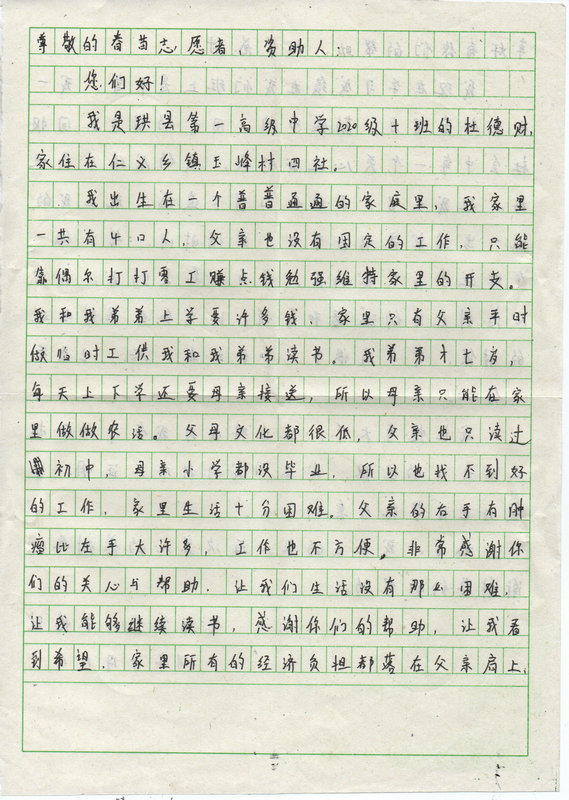 尊敬的春苗志愿者、资助人：
您们好！
我是珙县第一高级中学2020级十班的杜德财，
家住在仁义乡镇玉峰村四社。
我出生在一个普普通通的家庭里，我家里
一共有4口人，父亲也没有固定的工作，只能
靠偶尔打打零工赚点钱勉强维持家里的开支。
我和我弟弟上学要许多钱，家里只有父亲平时
做临时工供我和我弟弟读书。我弟弟才七岁，
每天上下学还要母亲接送，所以母亲只能在家
里做做农活。父母文化都很低，父亲也只读过
初中，母亲小学都没毕业，所以也找不到好
的工作，家里生活十分困难。父亲的右手有肿
瘤比左手大许多，工作也不方便。非常感谢你
们的关心与帮助，让我们生活没有那么困难，
让我能够继续读书，感谢你们的帮助，让我看
到希望，家里所有的经济负担都落在父亲肩上，